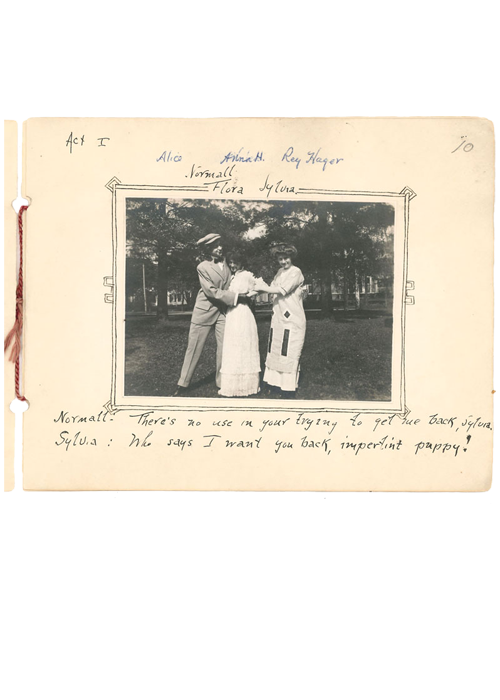 Act I
10
Alice Anna H. Rey Hager
Normall
Flora Sylvia
Normall- There's no use in your trying to get me back, Sylvia.
Sylvia: Who says I want you back, impertint puppy!